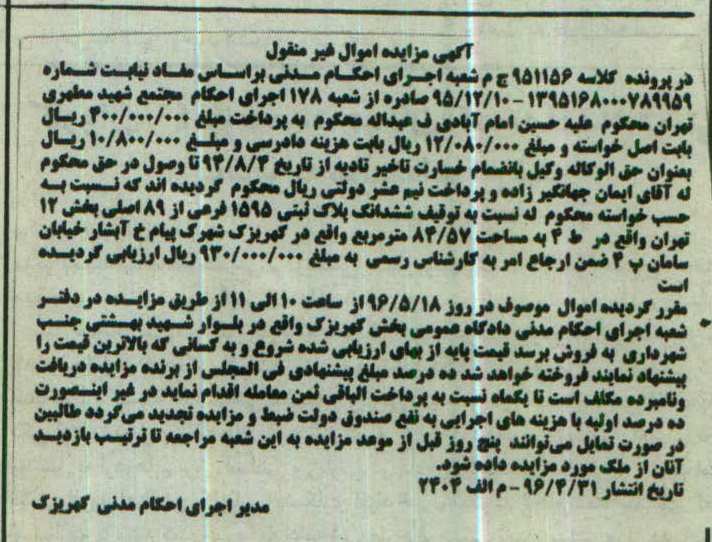 آگهی مزایده اموال غیر منقول
در پرونده کلاسه ۹۵۱۱۵۶ ج م شعبه اجرای احکام مدنی براساس مفاد نیابت شماره
۱۳۹۵۱۶۸۰۰۰۷۸۹۹۵۹ - ۹۵/۱۲/۱۰ صادره از شعبه ۱۷۸ اجرای احکام مجتمع شهید مطهری
تهران محکوم علیه حسین امام آبادی ف عبداله محکوم به پرداخت مبلغ ۴۰۰/۰۰۰/۰۰۰ ریال
بابت اصل خواسته و مبلغ ۱۲/۰۸۰/۰۰۰ ریال بابت هزینه دادرسی و مبلغ ۱۰/۸۰۰/۰۰۰ ریال
بعنوان حق الوکاله وکیل بانضمام خسارت تاخیر تادیه از تاریخ ۹۴/۸/۴ تا وصول در حق محکوم
له آقای ایمان جهانگیر زاده و پرداخت نیم عشر دولتی ریال محکوم گردیده اند که نسبت به
حسب خواسته محکوم له نسبت به توقیف ششدانگ پلاک ثبتی ۱۵۹۵ فرعی از ۸۹ اصلی بخش ۱۲
تهران واقع در ط ۴ به مساحت ۸۴/۵۷ مترمربع واقع در کهریزک شهرک پیام خ آبشار خیابان
سامان پ ۴ ضمن ارجاع امر به کارشناس رسمی به مبلغ ۹۳۰/۰۰۰/۰۰۰ ریال ارزیابی گردیده
است
مقرر گردیده اموال موصوف در روز ۹۶/۵/۱۸ از ساعت ۱۰ الی ۱۱ از طریق مزایده در دفتر
شعبه اجرای احکام مدنی دادگاه عمومی بخش کهریزک واقع در بلوار شهید بهشتی جنب
شهرداری به فروش برسد قیمت پایه از بهای ارزیابی شده شروع و به کسانی که بالاترین قیمت را
پیشنهاد نمایند فروخته خواهد شد ده درصد مبلغ پیشنهادی فی المجلس از برنده مزایده دریافت
ونامبرده مکلف است تا یکماه نسبت به پرداخت الباقی ثمن معامله اقدام نماید در غیر اینصورت
ده درصد اولیه با هزینه های اجرایی به نفع صندوق دولت ضبط و مزایده تجدید می گردد طالبین
در صورت تمایل می‌توانند پنج روز قبل از موعد مزایده به این شعبه مراجعه تا ترتیب بازدید
آنان از ملک مورد مزایده داده شود.
تاریخ انتشار ۹۶/۴/۳۱ - م الف ۲۴۰۴
مدیر اجرای احکام مدنی کهریزک